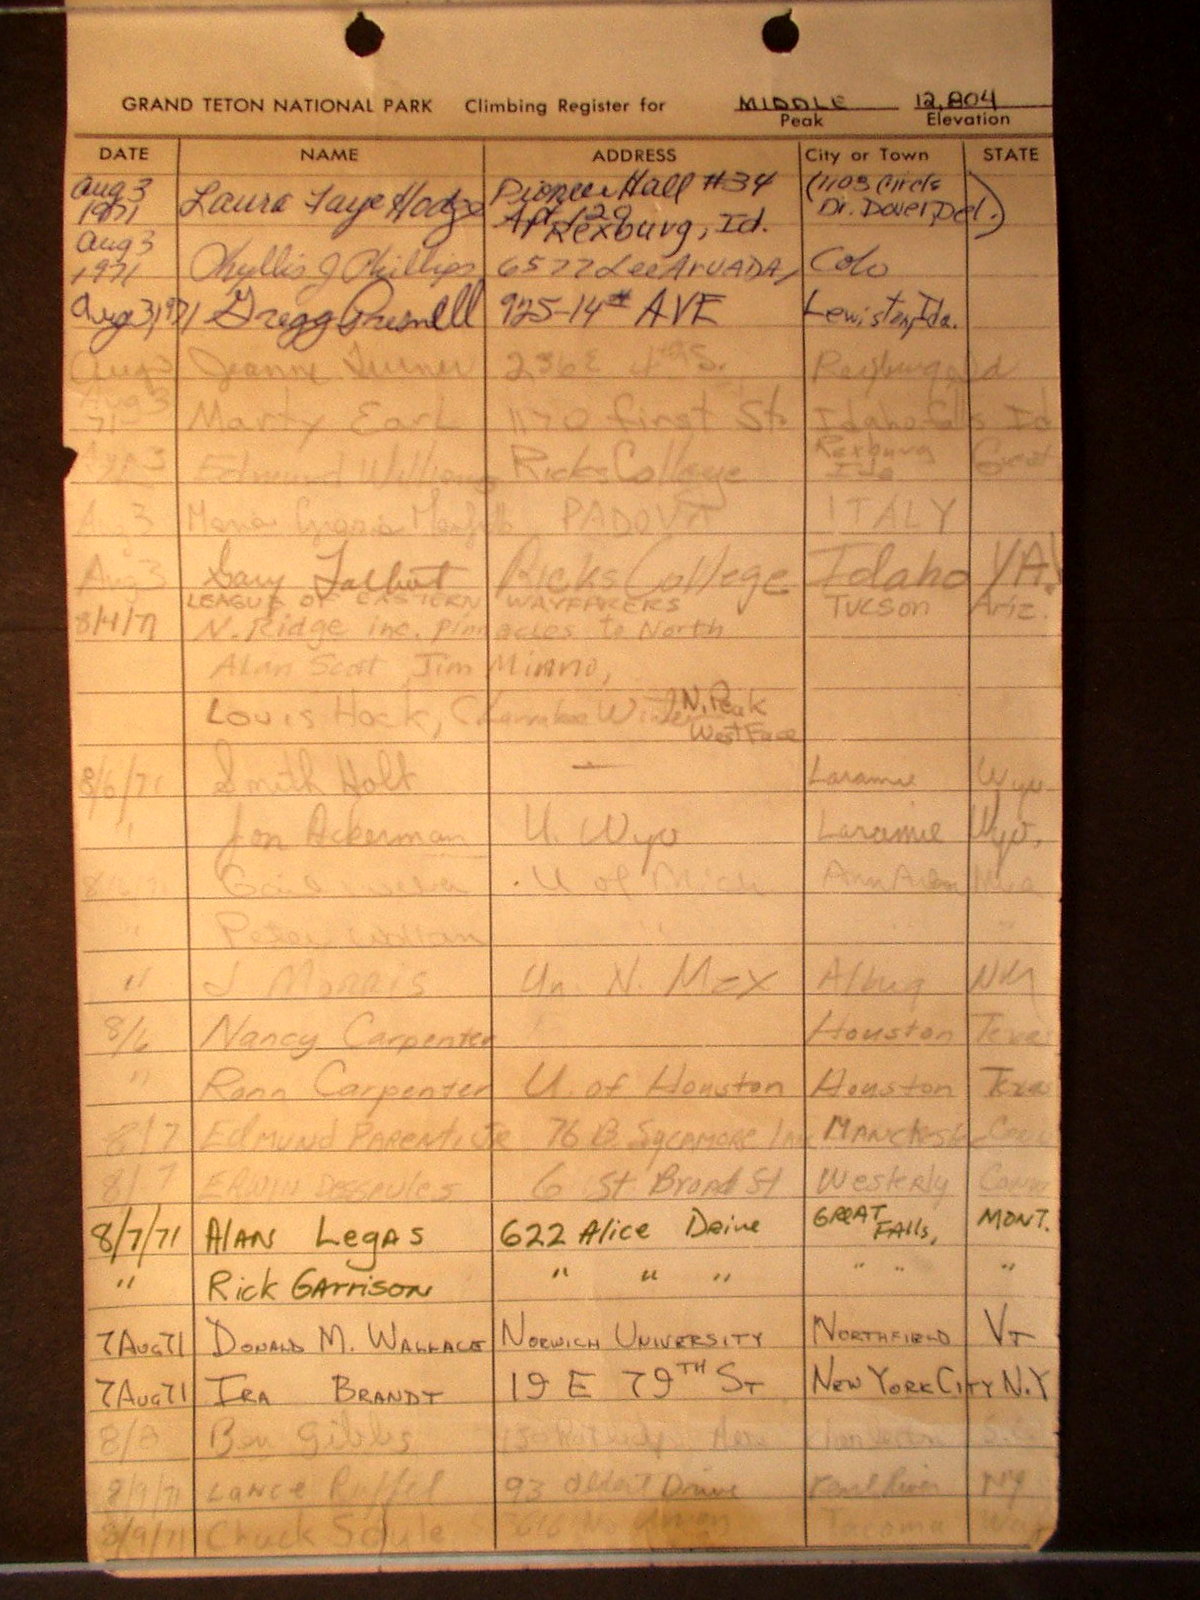 GRAND TETON NATIONAL PARK Climbing Register for MIDDLE 12,804
Peak Elevation
DATE NAME ADDRESS City or Town STATE
Aug 3 1971 Laura Faye Hodge Pioneer Hall #34 Apt 129 Rexburg, Id. (1103 Circle Dr. Dover, Del.)
Aug 3 1971 Phyllis J Phillips 6577 Lee Arvada, Colo
Aug 3, 1971 Gregg 925-14th AVE Lewiston, Ida.
Aug 3 Jeanne Turner 236 E 4th S. Rexburg Id
Aug 3 71 Marty Earl 1170 First St. Idaho Falls Id
Aug 3 Edmund Williams Ricks College Rexburg Ida
Aug 3 Maria PADOVA ITALY
Aug 3 Gary Talbert Ricks College Idaho YA!
LEAGUE OF EASTERN WAYFARERS TUCSON Ariz.
8/4/71 N. Ridge inc. Pinnacles to North
Alan Scott Jim Minno,
Louis Hock, N. Peak West Face
8/6/71 Smith Holt — Laramie Wyo.
" Jon Ackerman U. Wyo Laramie Wyo.
U of Mich Ann Arbor
" Peter " "
" J Morris Un. N. Mex Albuq NM
8/6 Nancy Carpenter Houston Texas
" Ronn Carpenter U. of Houston Houston Texas
8/7 Edmund Parenti Jr 76 B Sycamore Manchester Conn
8/7 ERWIN DESSEULES 6 St Broad St Westerly Conn
8/7/71 Alan Legas 622 Alice Drive GREAT FAlls, MONT.
" Rick GArrison " " " " " "
7 Aug 71 Donald M. Wallace Norwich University Northfield Vt
7 Aug 71 Ira Brandt 19 E 79TH St New York City N.Y
8/8 Ben Gibbs
8/9/71 Lance Ruffel 93 Drive Pearl River NY
8/9/71 Chuck 3616 No Union Tacoma Wash